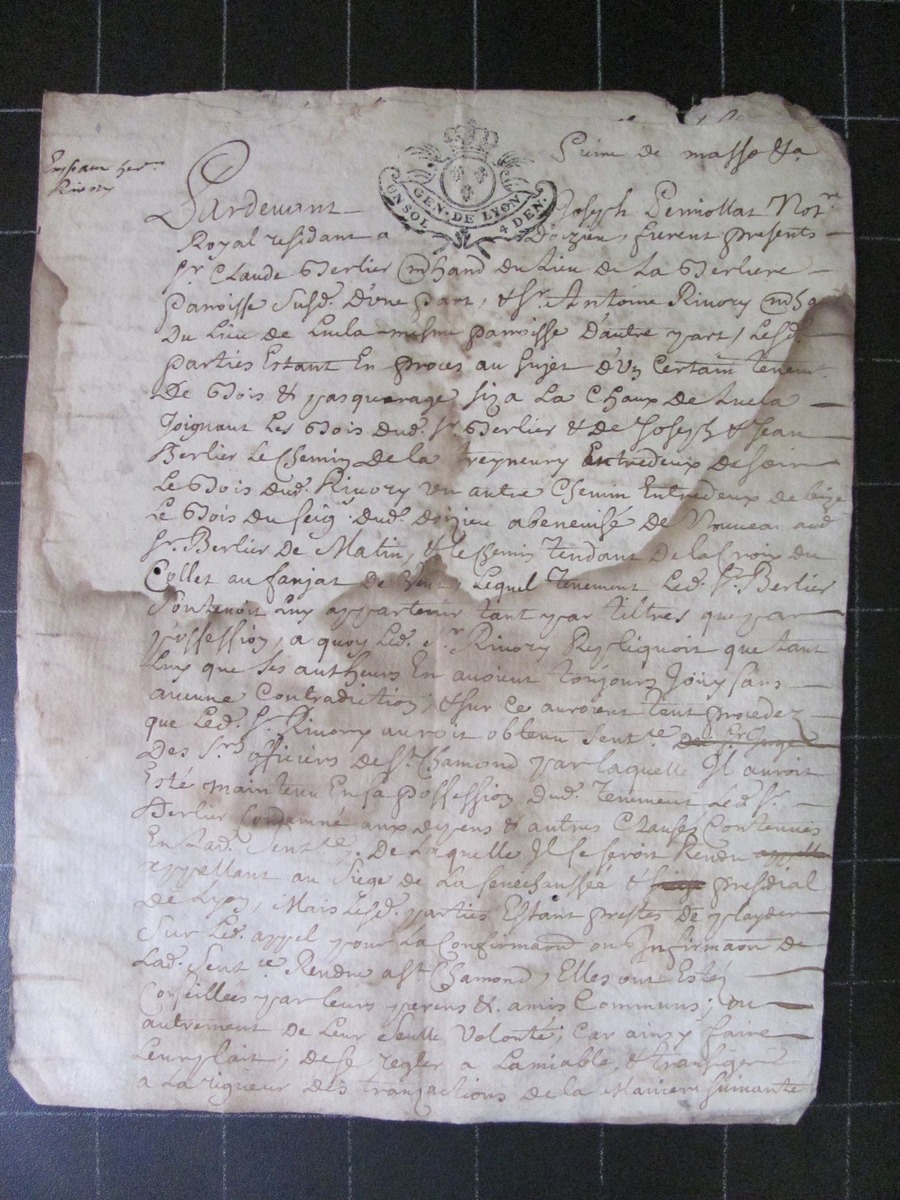 GEN. DE LYON
ON SOL 4 DEN.
Rivory
Pardevant Joseph Perriollat Not.re
Royal residant a Doizieu, furent presents
Sr. Claude Berlier mchand du Lieu de La Berliere
parroisse susd. d'une part, & Sr. Antoine Rivory mcha
du Lieu de Lucla mesme parroisse d'autre part, Lesd.
parties Estant En proces au sujet d'un Certain tenemt
De Bois & pasquerage siz a La Chaux de Lucla
Joignant Les Bois dud. Sr Berlier & de Joseph & Jean
Berlier Le Chemin de la treyneury Entredeux de soir
Le Bois dud. Rivory un autre Chemin Entredeux de bize
Le Bois du seigr. dud. doizieu abenevisé de Nouveau aud
Sr. Berlier de Matin, & le chemin tendant de la Croix du
Collet au fanjat de vent, Lequel tenement Led. Sr. Berlier
soutenoit Luy appartenir tant par tiltres que par
possession, a quoy Led. Sr Rivory Repliquoit que tant
Luy que ses autheurs En avoient toujours Jouy sans
aucune Contradiction, & sur ce auroient tant procedez
que Led. Sr. Rivory auroit obtenu sentce
Des Srs officiers de St Chamond par laquelle Il auroit
Esté maintenu En sa possession dud. tenement Led. Sr.
Berlier Condamné aux depens & autres Clauses Contenues
En Lad. sentce. De Laquelle Il se seroit Rendu appelle
appellant au siege de La senechaussée & presidial
de Lyon, Mais Lesd. parties Estant prestes de playder
sur Led. appel pour La Confirmaon ou Infirmaon de
Lad. sentce Rendue a St Chamond, Elles ont Esté
Conseillées par leurs parens & amis Communs, ou
autrement de Leur seulle Volonté, Car ainsy faire
Leur plait, de se regler a Lamiable, & transiger
a La rigueur des transactions de la Maniere suivante